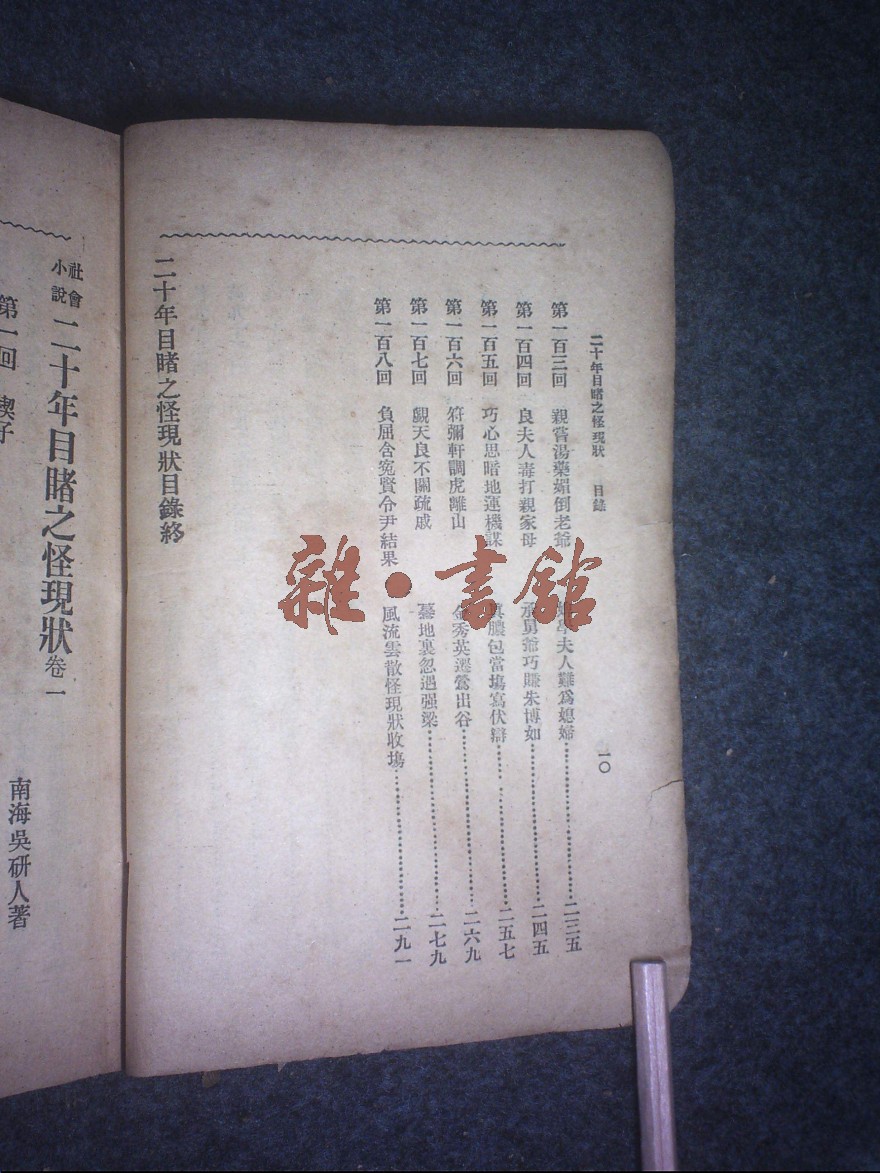 二十年目睹之怪現狀　目錄　一〇
第一百三回　親嘗湯藥媚倒老爺　夫人難爲媳婦……二三五
第一百四回　良夫人毒打親家母　承舅爺巧賺朱博如……二四五
第一百五回　巧心思暗地運機謀　真膿包當塲寫伏辯……二五七
第一百六回　符彌軒調虎離山　金秀英遷鶯出谷……二六九
第一百七回　覷天良不關疏戚　驀地裏忽遇强梁……二七九
第一百八回　負屈含冤賢令尹結果　風流雲散怪現狀收塲……二九一
二十年目睹之怪現狀目錄終
社會小說　二十年目睹之怪現狀卷一
南海吳研人著
第一回　楔子
雜·書館